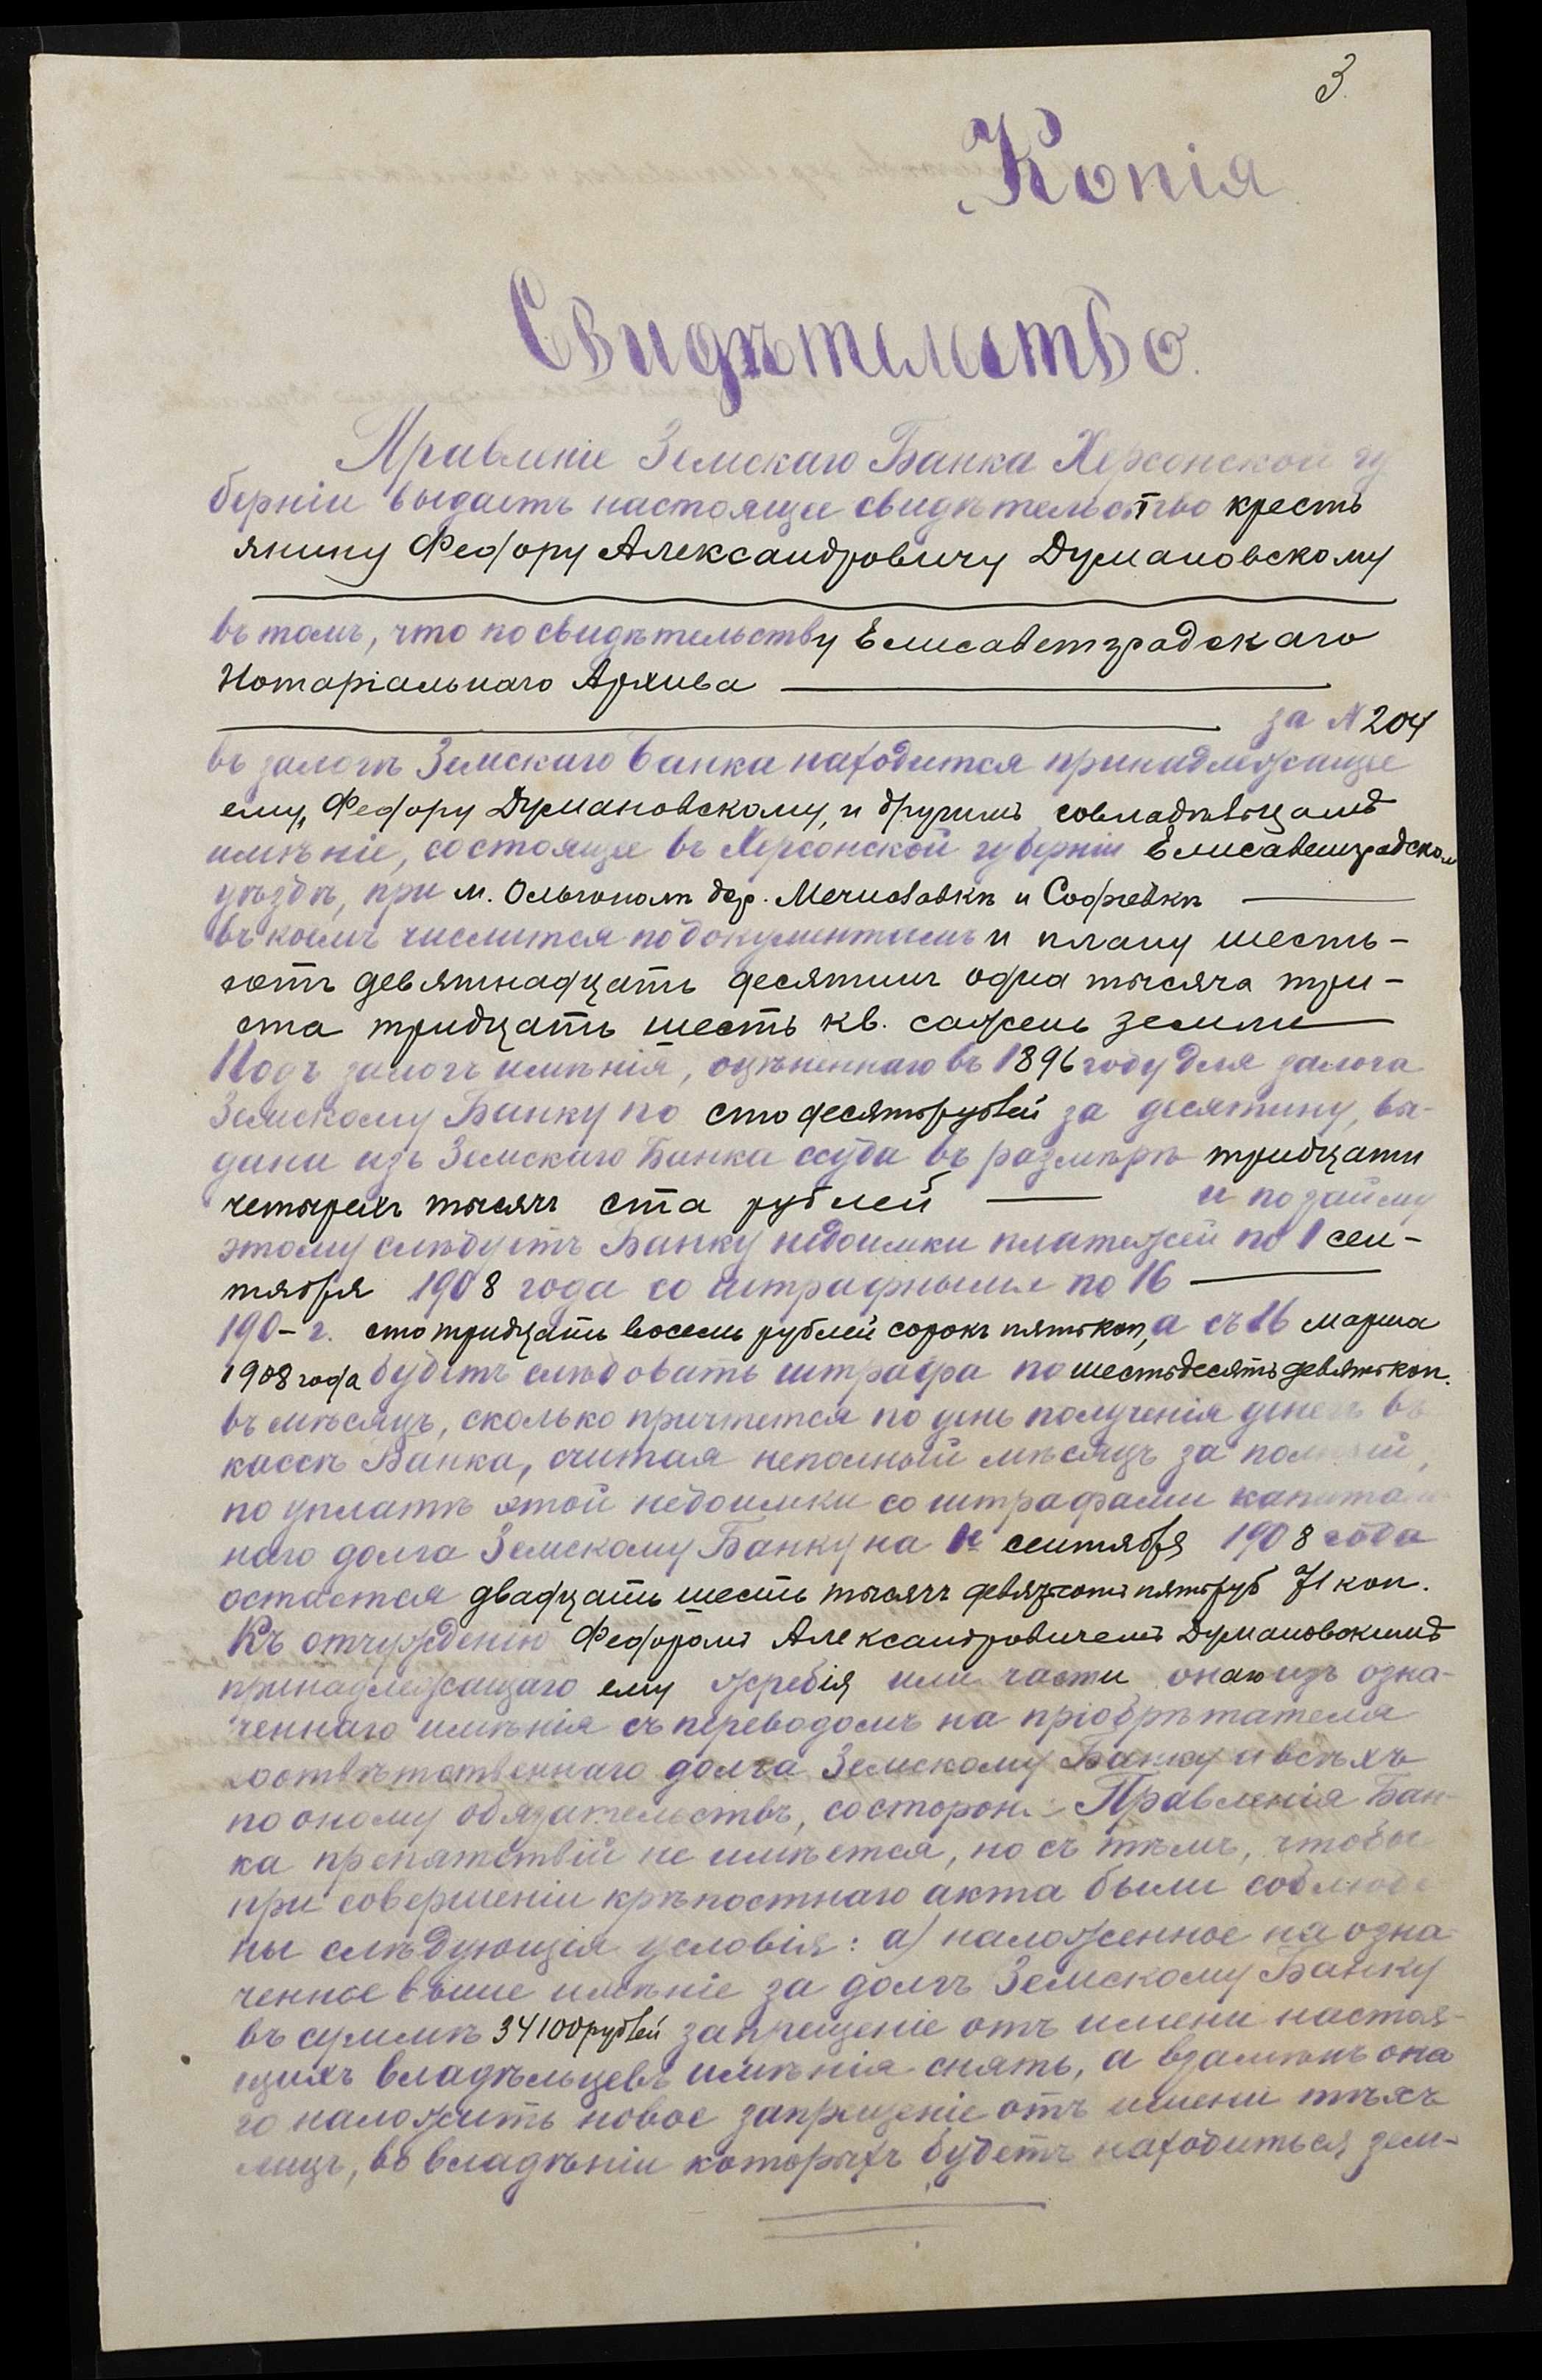 3
Копія
Свидѣтельство.
Правленіе Земскаго Банка Херсонской гу
берніи выдаетъ настоящее свидѣтельство кресть
янину Федору Александровичу Думановскому
въ томъ, что по свидѣтельству Елисаветградскаго
Нотаріальнаго Архива
за N 204
въ залогѣ Земскаго Банка находится принадлежащее
ему, Федору Думановскому, и другимъ совладѣльцамъ
имѣніе, состоящее въ Херсонской губерніи Елисаветградском
уѣздѣ, при м. Ольгополѣ дер. Мечиславкѣ и Софіевкѣ
въ коемъ числится по документамъ и плану шесть-
сотъ девятнадцать десятинъ одна тысяча три-
ста тридцать шесть кв. сажень земли
Подъ залогъ имѣнія, оцѣненнаго въ 1896 году для залога
Земскому Банку по сто десять рублей за десятину, вы-
дана изъ Земскаго Банка ссуда въ размѣрѣ тридцати
четырехъ тысячъ ста рублей и по займу
этому слѣдуетъ Банку недоимки платежей по 1 сен-
тября 1908 года со штрафными по 16
190- г. сто тридцать восемь рублей сорокъ пять коп, а съ 16 марта
1908 года будетъ слѣдовать штрафа по шестьдесятъ девять коп.
въ мѣсяцъ, сколько причтется по день полученія денегъ въ
кассѣ Банка, считая неполный мѣсяцъ за полный,
по уплатѣ этой недоимки со штрафами капиталь
наго долга Земскому Банку на 1е сентября 1908 года
остается двадцать шесть тысячъ девятьсотъ пять руб 71 коп.
Къ отчужденію Федоромъ Александровичемъ Думановскимъ
принадлежащаго ему жребія или части онаго изъ озна-
ченнаго имѣнія съ переводомъ на пріобрѣтателя
соотвѣтственнаго долга Земскому Банку и всѣхъ
по оному обязательствъ, со стороны Правленія Бан-
ка препятствій не имѣется, но съ тѣмъ, чтобы
при совершеніи крѣпостнаго акта были соблюде
ны слѣдующія условія: а) наложенное на озна
ченное выше имѣніе за долгъ Земскому Банку
въ суммѣ 34100 рублей запрещеніе отъ имени настоя-
щихъ владѣльцевъ имѣнія снять, а взамѣнъ она
го наложить новое запрещеніе отъ имени тѣхъ
лицъ, въ владѣніи которыхъ будетъ находиться зем-